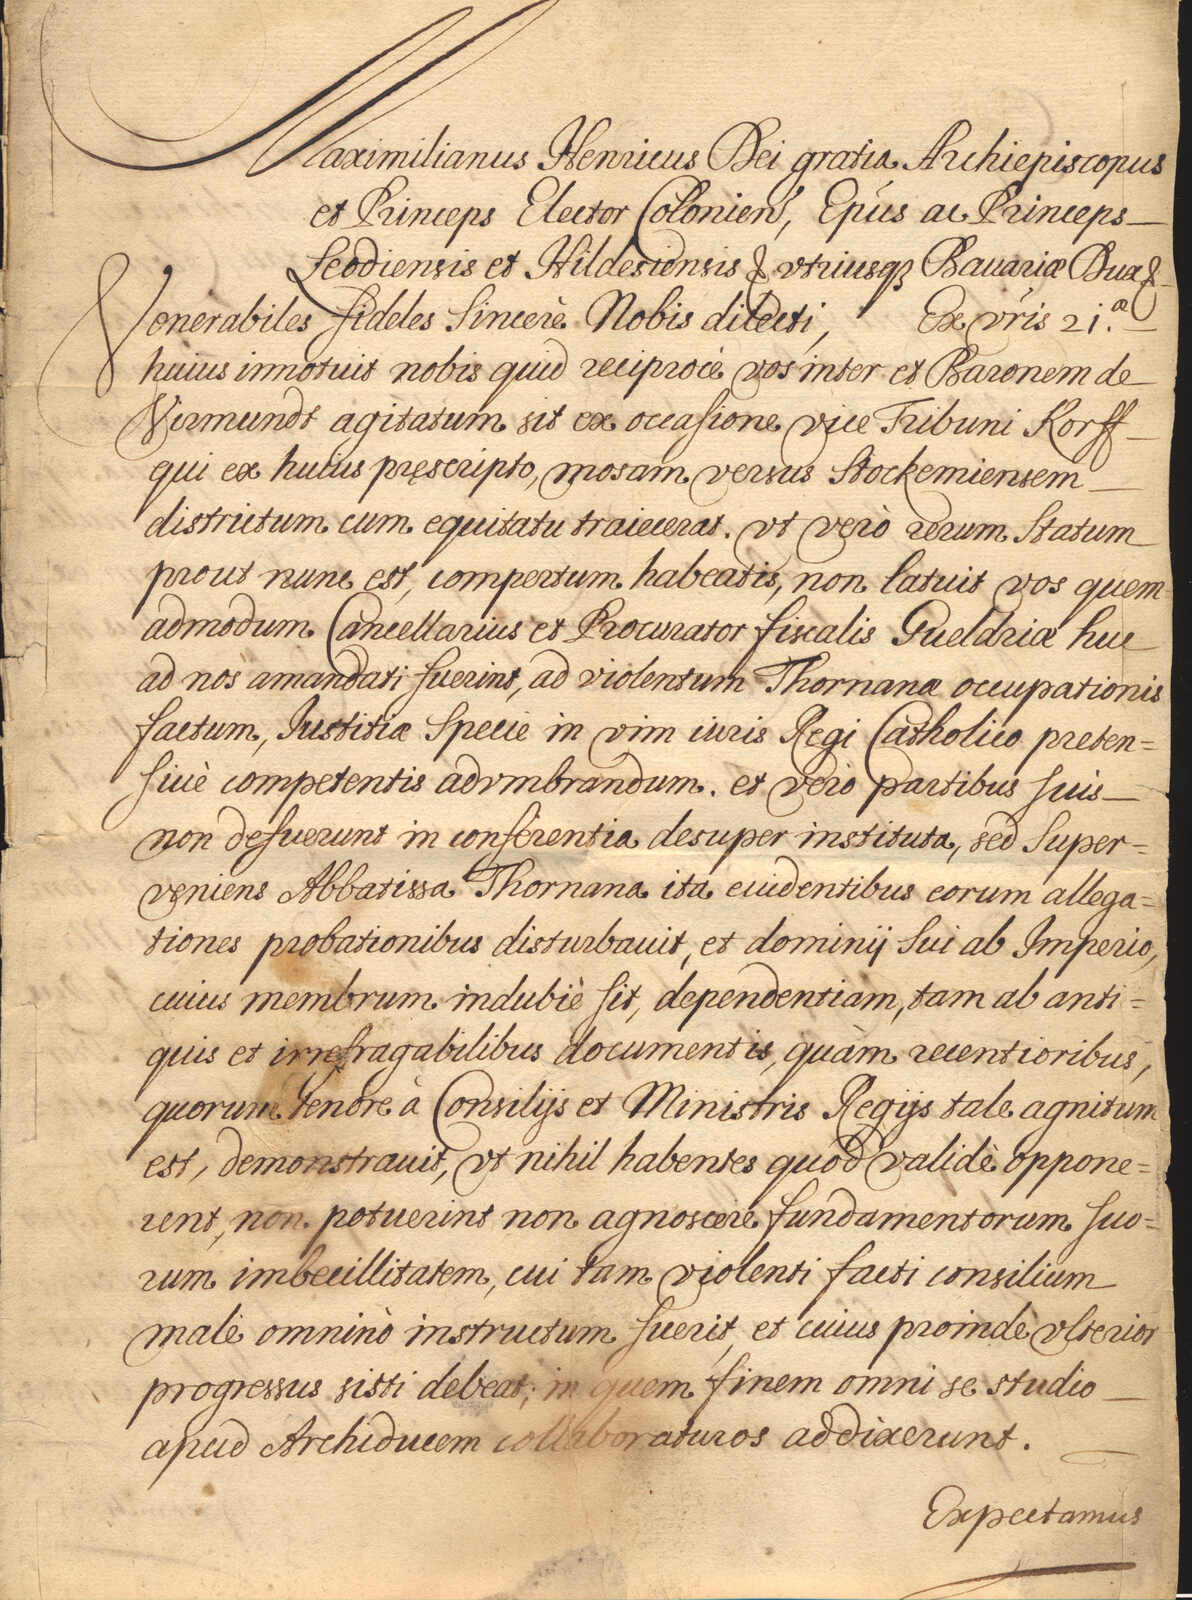 Maximilianus Henricus Dei gratia Archiepiscopus
et Princeps Elector Colonien̄, Epũs ac Princeps
Leodiensis et Hildesiensis & vtriusqȝ Bauariæ Dux &
Venerabiles fideles sincerè Nobis dilecti, Ex vr̃is 21.a
huius innotuit nobis quid reciprocè vos inter et Baronem de
Virmundt agitatum sit ex occasione vice Tribuni Korff
qui ex huius pręscripto, mosam versus Stockemiensem
districtum cum equitatu traiecerat. vt verò rerum statum
prout nunc est, compertum habeatis, non latuit vos quem
admodum Cancellarius et Procurator fiscalis Gueldriæ huc
ad nos amandati fuerint, ad violentum Thornanæ occupationis
factum, Iustitiæ specie in vim iuris Regi Catholico preten=
siuè competentis advmbrandum. et verò partibus suis
non defuerunt in conferentia desuper instituta, sed super=
veniens Abbatissa Thornana ita euidentibus eorum allega=
tiones probationibus disturbauit, et dominij sui ab Imperio,
cuius membrum indubiè sit, dependentiam, tam ab anti=
quis et irrefragabilibus documentis, quàm recentioribus,
quorum tenore à Consilijs et Ministris Regijs tale agnitum
est, demonstrauit, vt nihil habentes quod validè oppone=
rent, non potuerint non agnoscere fundamentorum suo=
rum imbecillitatem, cui tam violenti facti consilium
malè omninò instructum fuerit, et cuius proindè vlterior
progressus sisti debeat; in quem finem omni se studio
apud Archiducem collaboraturos addixerunt.
Expectamus